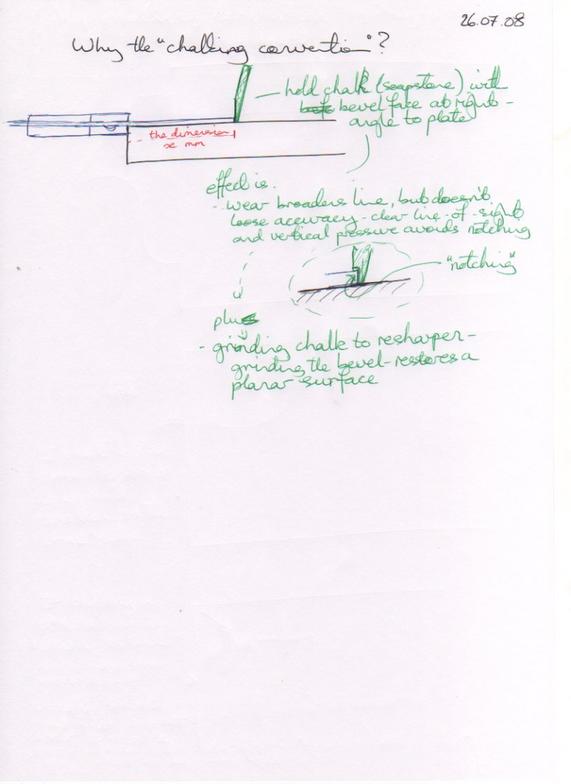 26.07.08
Why the "chalking convention"?
hold chalk (soapstone) with
bevel face at right-
angle to plate
the dimension
x mm
effect is.
- wear broadens line, but doesn't
loose accuracy - clear line-of-sight
and vertical pressure avoids notching
"notching"
plus
- grinding chalk to resharpen -
grinding the bevel - restores a
planar surface